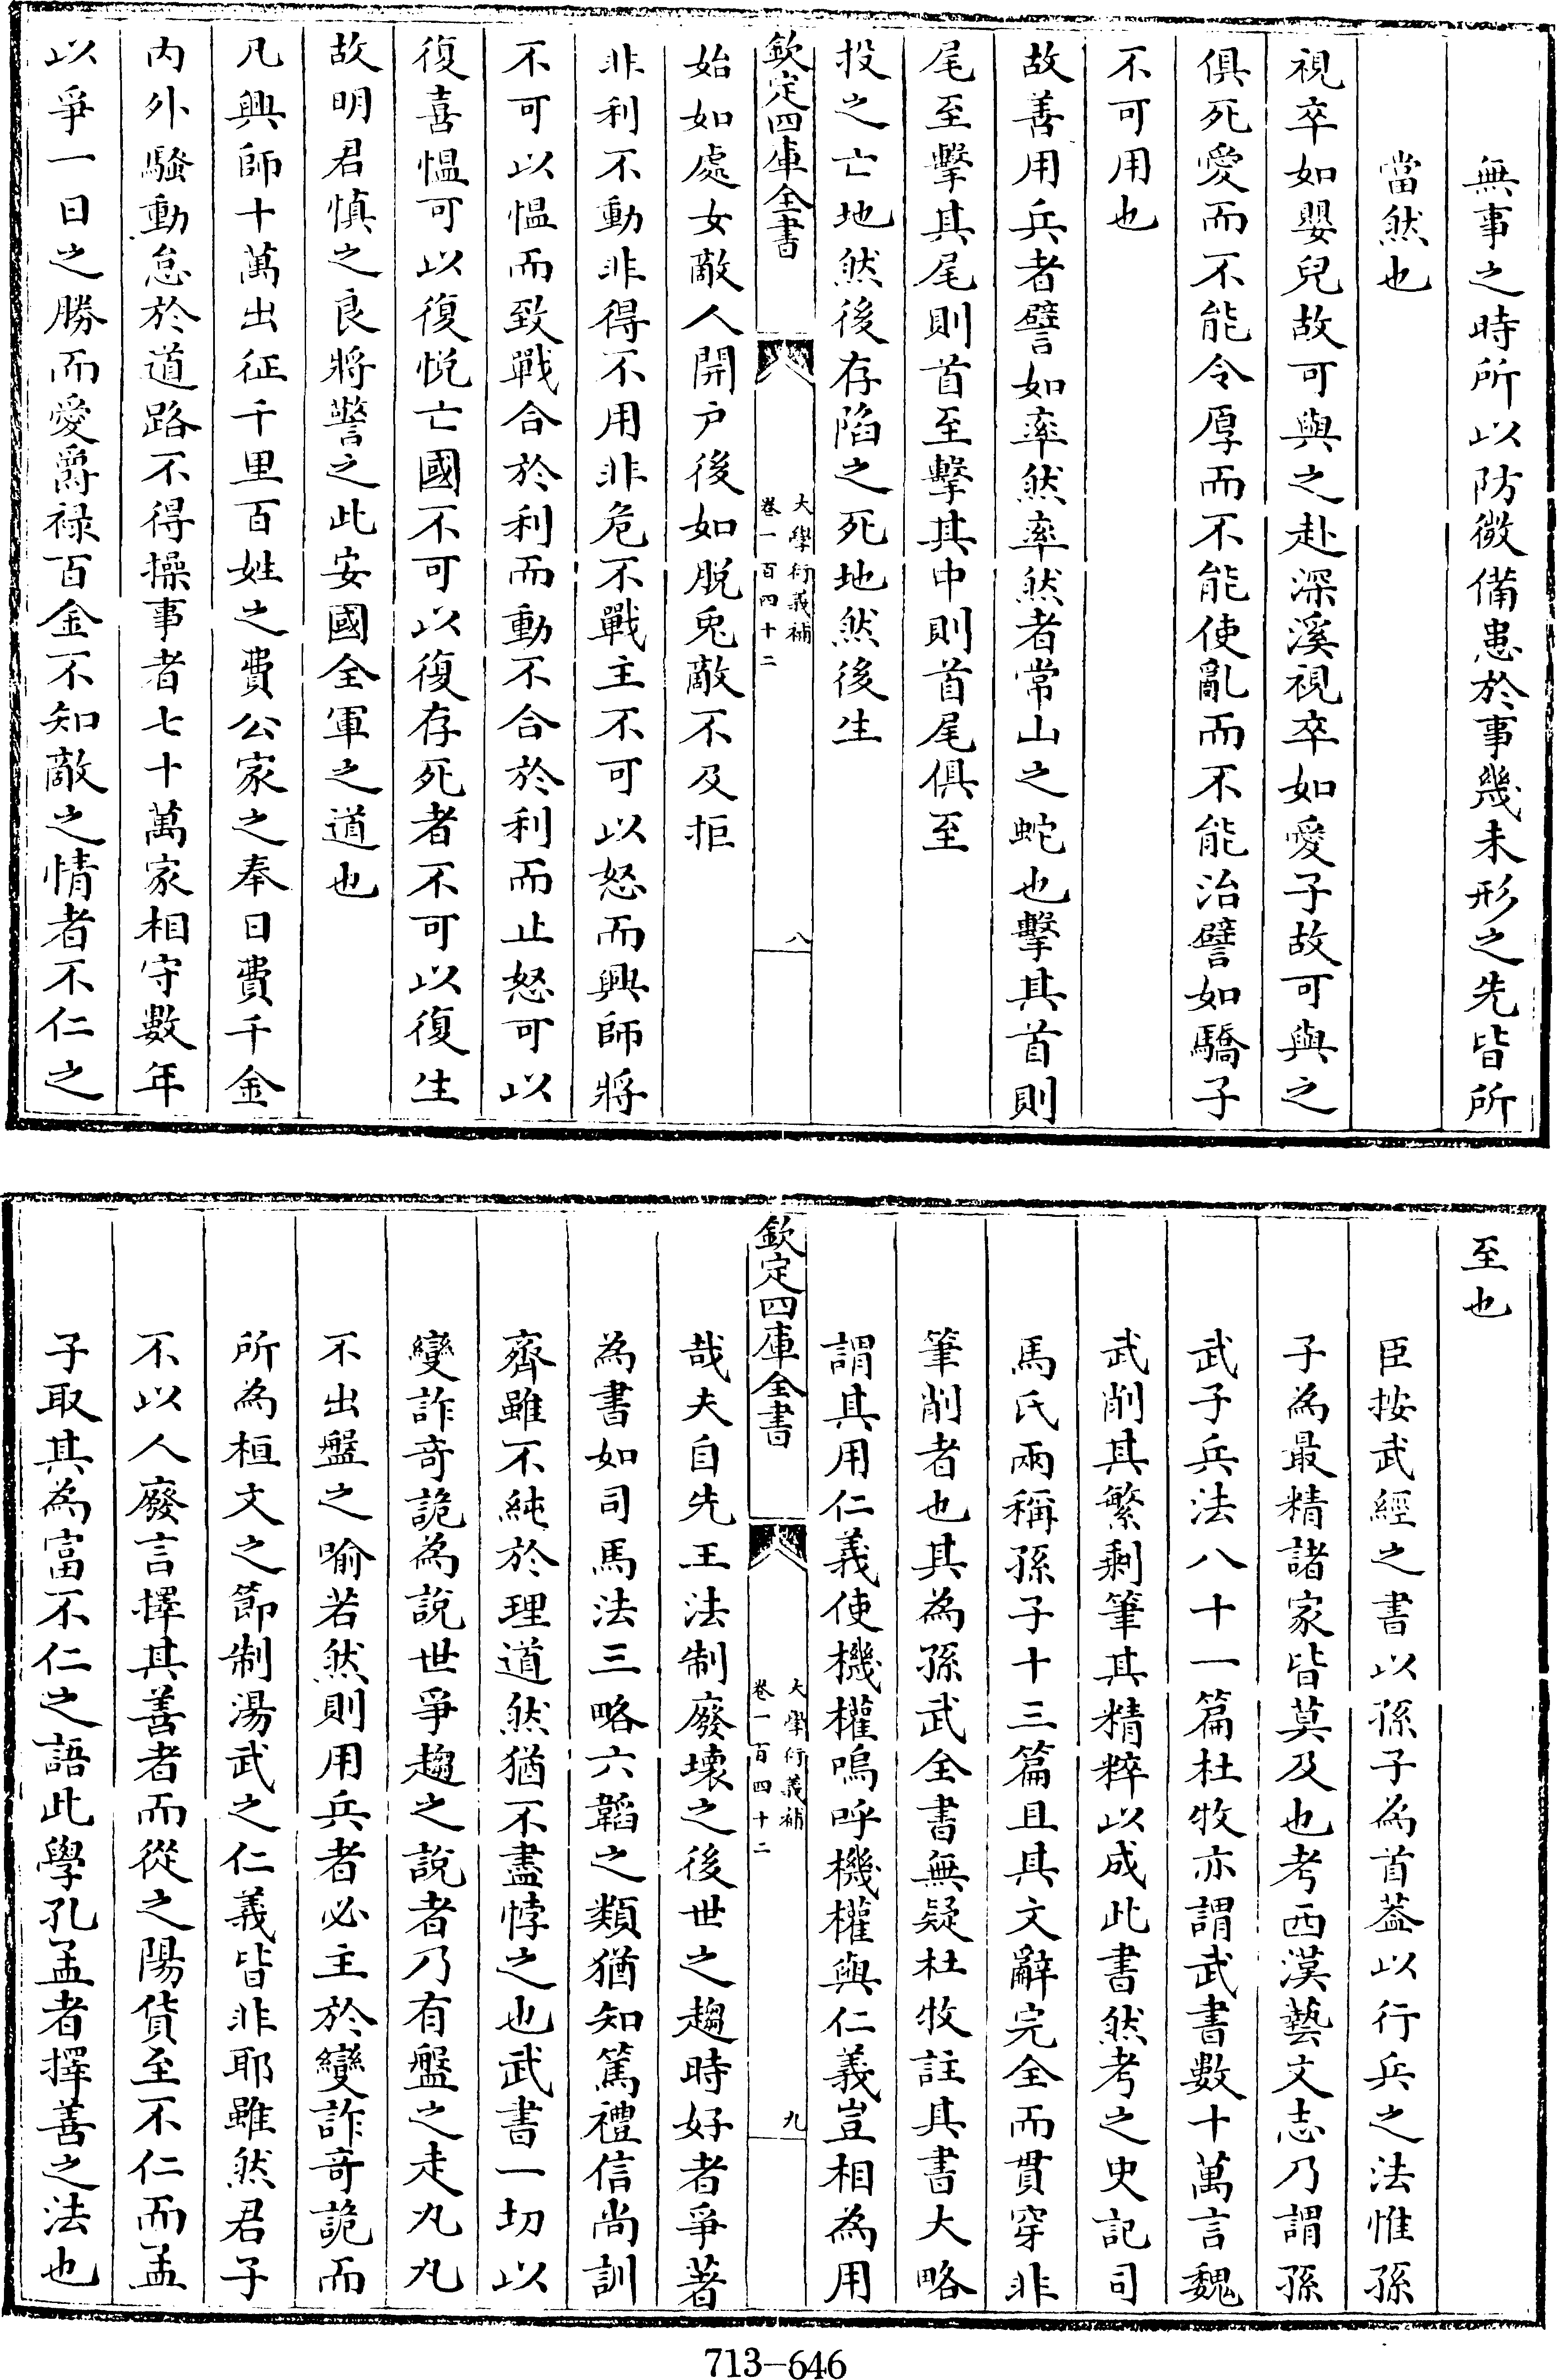 無事之時所以防微備患於事幾未形之先皆所
當然也
視卒如嬰兒故可與之赴深溪視卒如愛子故可與之
俱死愛而不能令厚而不能使亂而不能治譬如驕子
不可用也
故善用兵者譬如率然率然者常山之蛇也擊其首則
尾至擊其尾則首至擊其中則首尾俱至
投之亡地然後存陷之死地然後生
欽定四庫全書
大學衍義補
卷一百四十二
八
始如處女敵人開戶後如脫兎敵不及拒
非利不動非得不用非危不戰主不可以怒而興師將
不可以愠而致戰合於利而動不合於利而止怒可以
復喜愠可以復悅亡國不可以復存死者不可以復生
故明君慎之良將警之此安國全軍之道也
凡興師十萬出征千里百姓之費公家之奉日費千金
内外騷動怠於道路不得操事者七十萬家相守數年
以爭一日之勝而愛爵禄百金不知敵之情者不仁之
至也
臣按武經之書以孫子為首葢以行兵之法惟孫
子為最精諸家皆莫及也考西漢藝文志乃謂孫
武子兵法八十一篇杜牧亦謂武書數十萬言魏
武削其繁剩筆其精粹以成此書然考之史記司
馬氏兩稱孫子十三篇且其文辭完全而貫穿非
筆削者也其為孫武全書無疑杜牧註其書大略
謂其用仁義使機權嗚呼機權與仁義豈相為用
欽定四庫全書
大學衍義補
卷一百四十二
九
哉夫自先王法制廢壞之後世之趨時好者爭著
為書如司馬法三略六韜之類猶知篤禮信尚訓
齊雖不純於理道然猶不盡悖之也武書一切以
變詐奇詭為說世爭趨之說者乃有盤之走丸丸
不出盤之喻若然則用兵者必主於變詐奇詭而
所為桓文之節制湯武之仁義皆非耶雖然君子
不以人廢言擇其善者而從之陽貨至不仁而孟
子取其為富不仁之語此學孔孟者擇善之法也
713-646